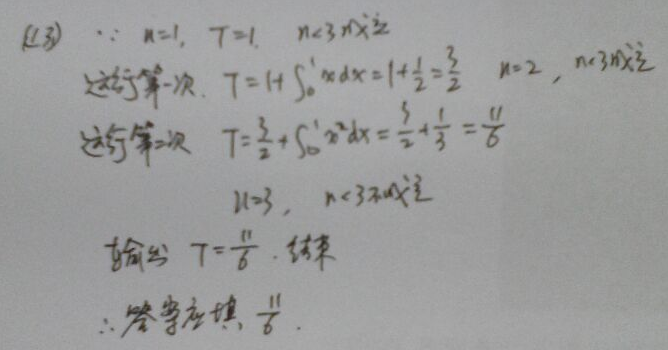 (13) ∵ n=1, T=1, n<3成立
运行第一次. T=1+∫₀¹xdx=1+1/2=3/2 n=2, n<3成立
运行第二次 T=3/2+∫₀¹x²dx=3/2+1/3=11/6
n=3, n<3不成立
输出 T=11/6. 结束
∴答案应填 11/6.